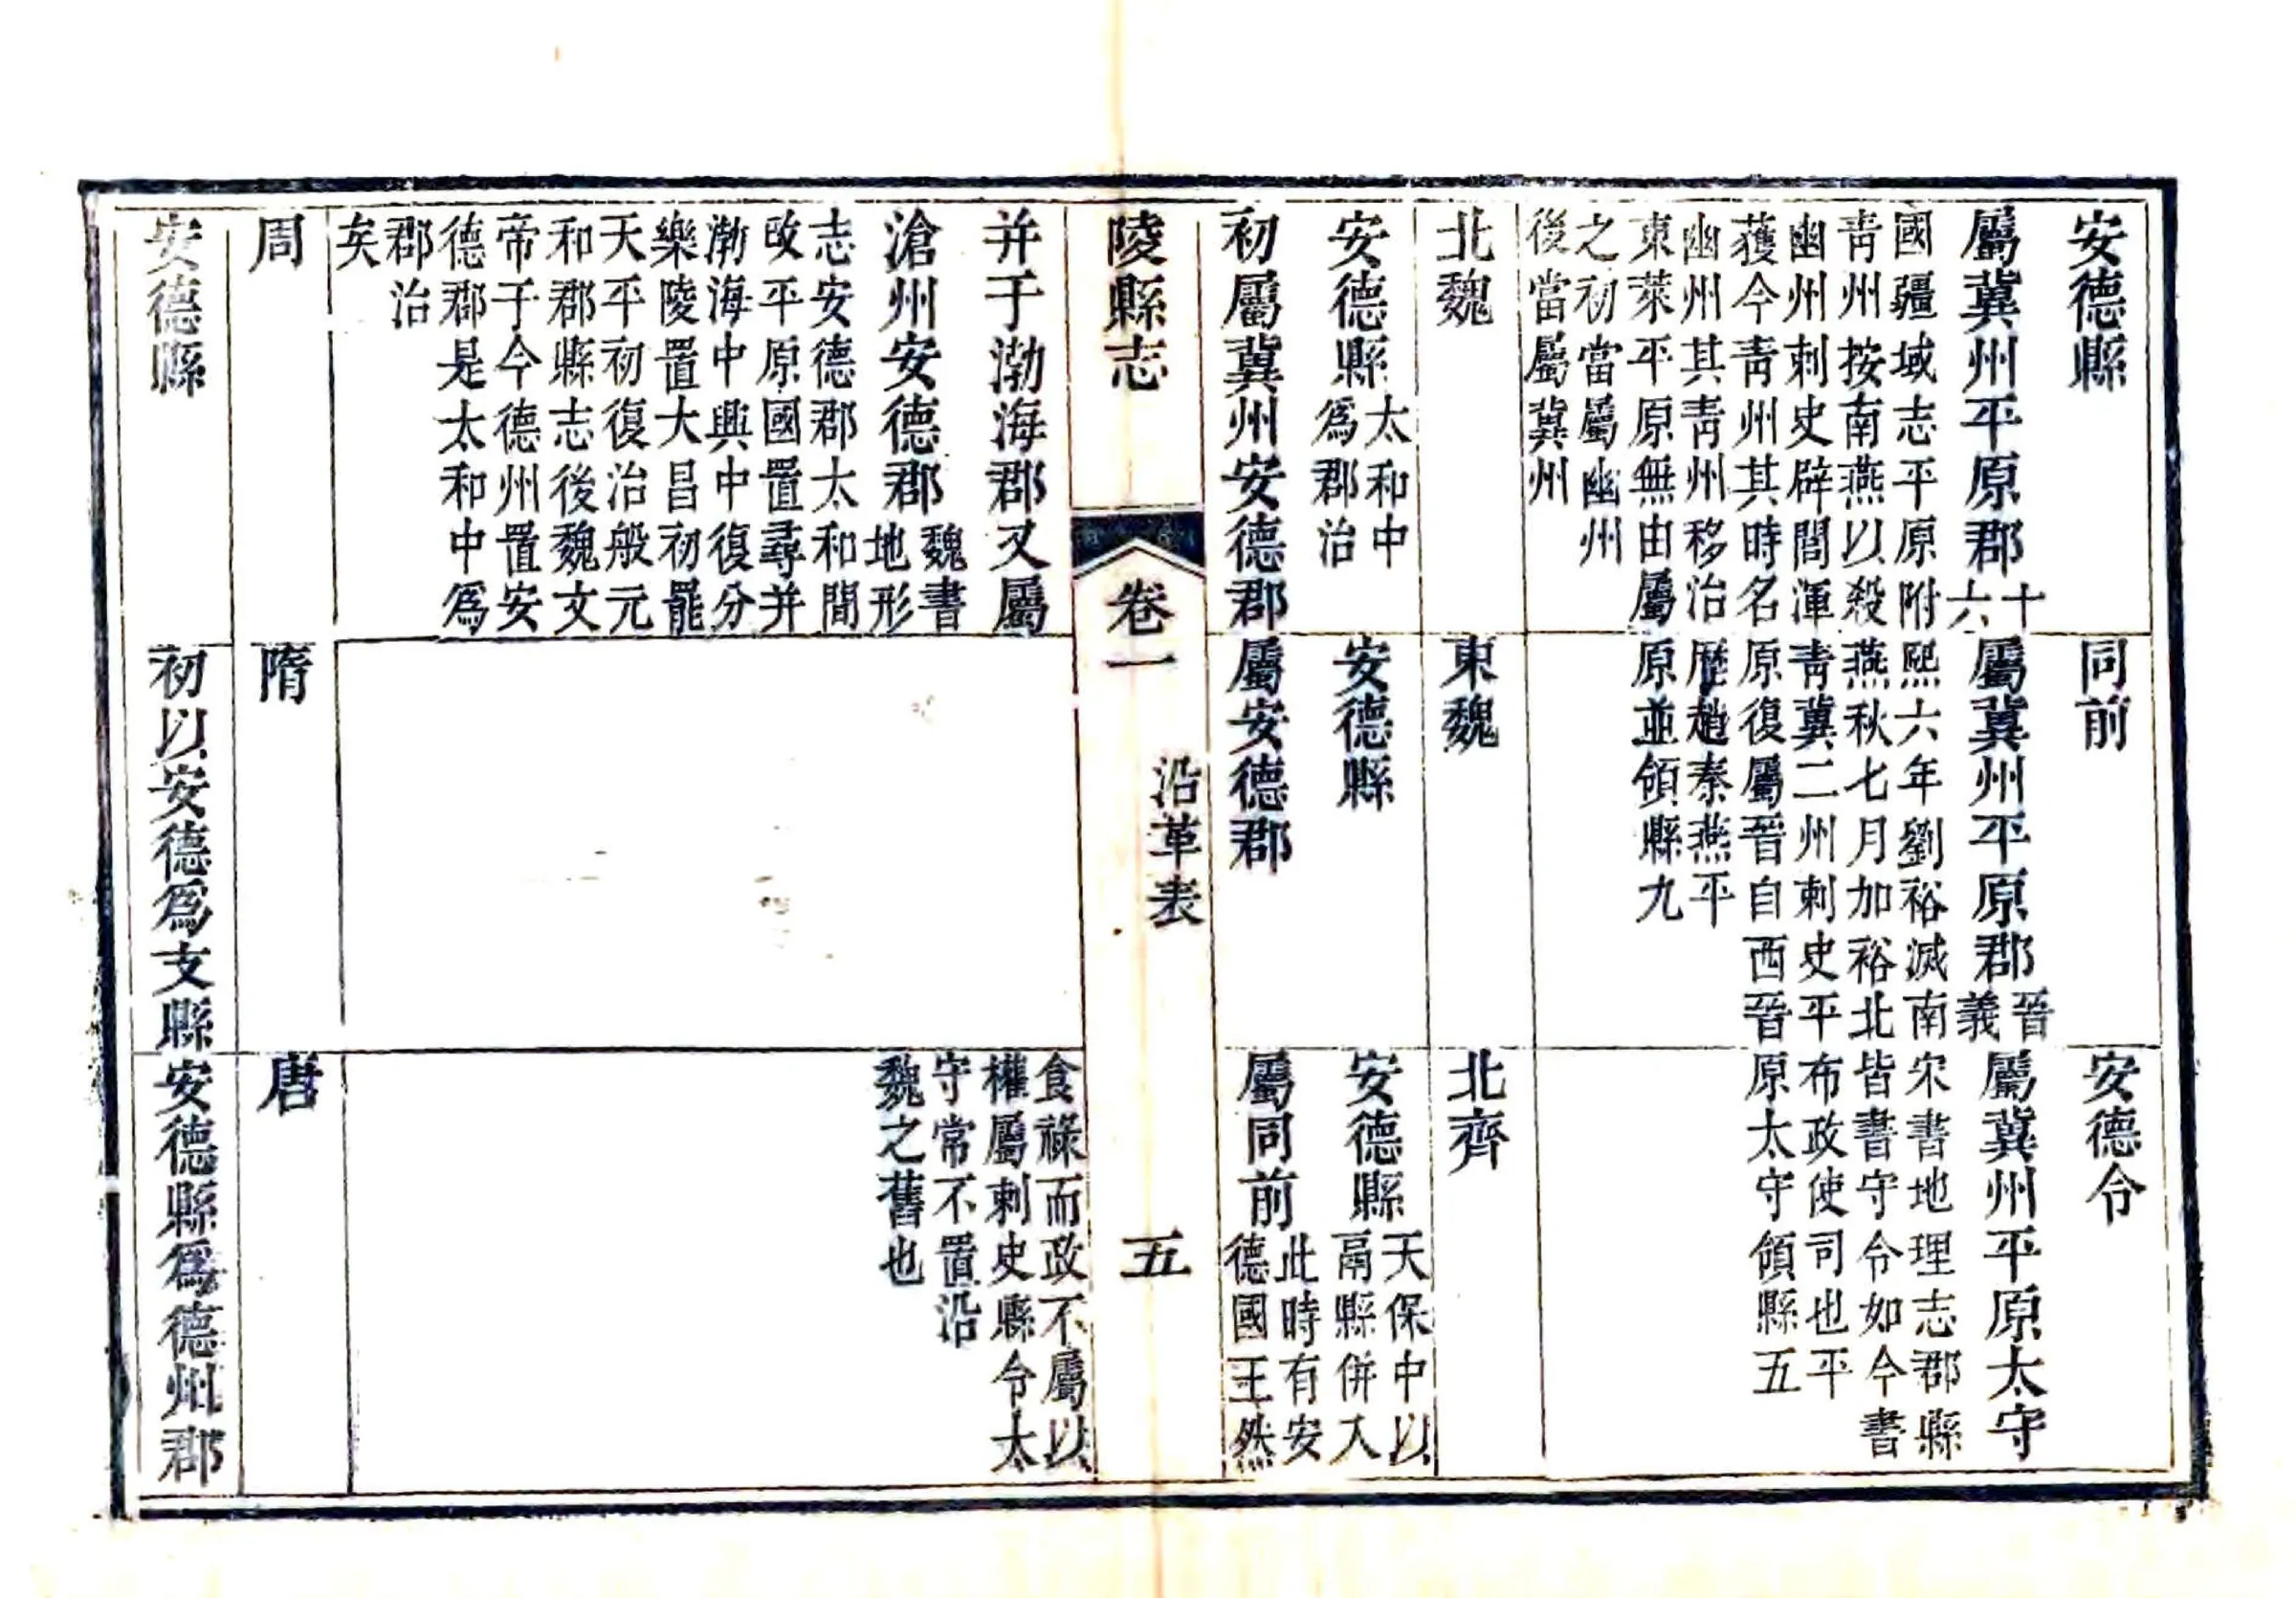 安德縣
屬冀州平原郡十六
國疆域志平原附
青州按南燕以殺
幽州刺史辟閭渾
獲今青州其時名
幽州其青州移治
東萊平原無由屬
之初當屬幽州
後當屬冀州
同前
屬冀州平原郡晉義
熙六年劉裕滅南
燕秋七月加裕北
青冀二州刺史平
原復屬晉自西晉
歷趙秦燕平
原並領縣九
安德令
屬冀州平原太守
宋書地理志郡縣
皆書守令如今書
布政使司也平
原太守領縣五
北魏
安德縣太和中
爲郡治
初屬冀州安德郡
東魏
安德縣
屬安德郡
北齊
安德縣天保中以
鬲縣併入
屬同前此時有安
德國王然
陵縣志
卷一
沿革表
五
并于渤海郡又屬
滄州安德郡魏書
地形
志安德郡太和間
改平原國置尋并
渤海中興中復分
樂陵置大昌初罷
天平初復治般元
和郡縣志後魏文
帝于今德州置安
德郡是太和中爲
郡治
矣
食祿而政不屬以
權屬刺史縣令太
守常不置沿
魏之舊也
周
安德縣
隋
初以安德爲支縣
唐
安德縣爲德州郡